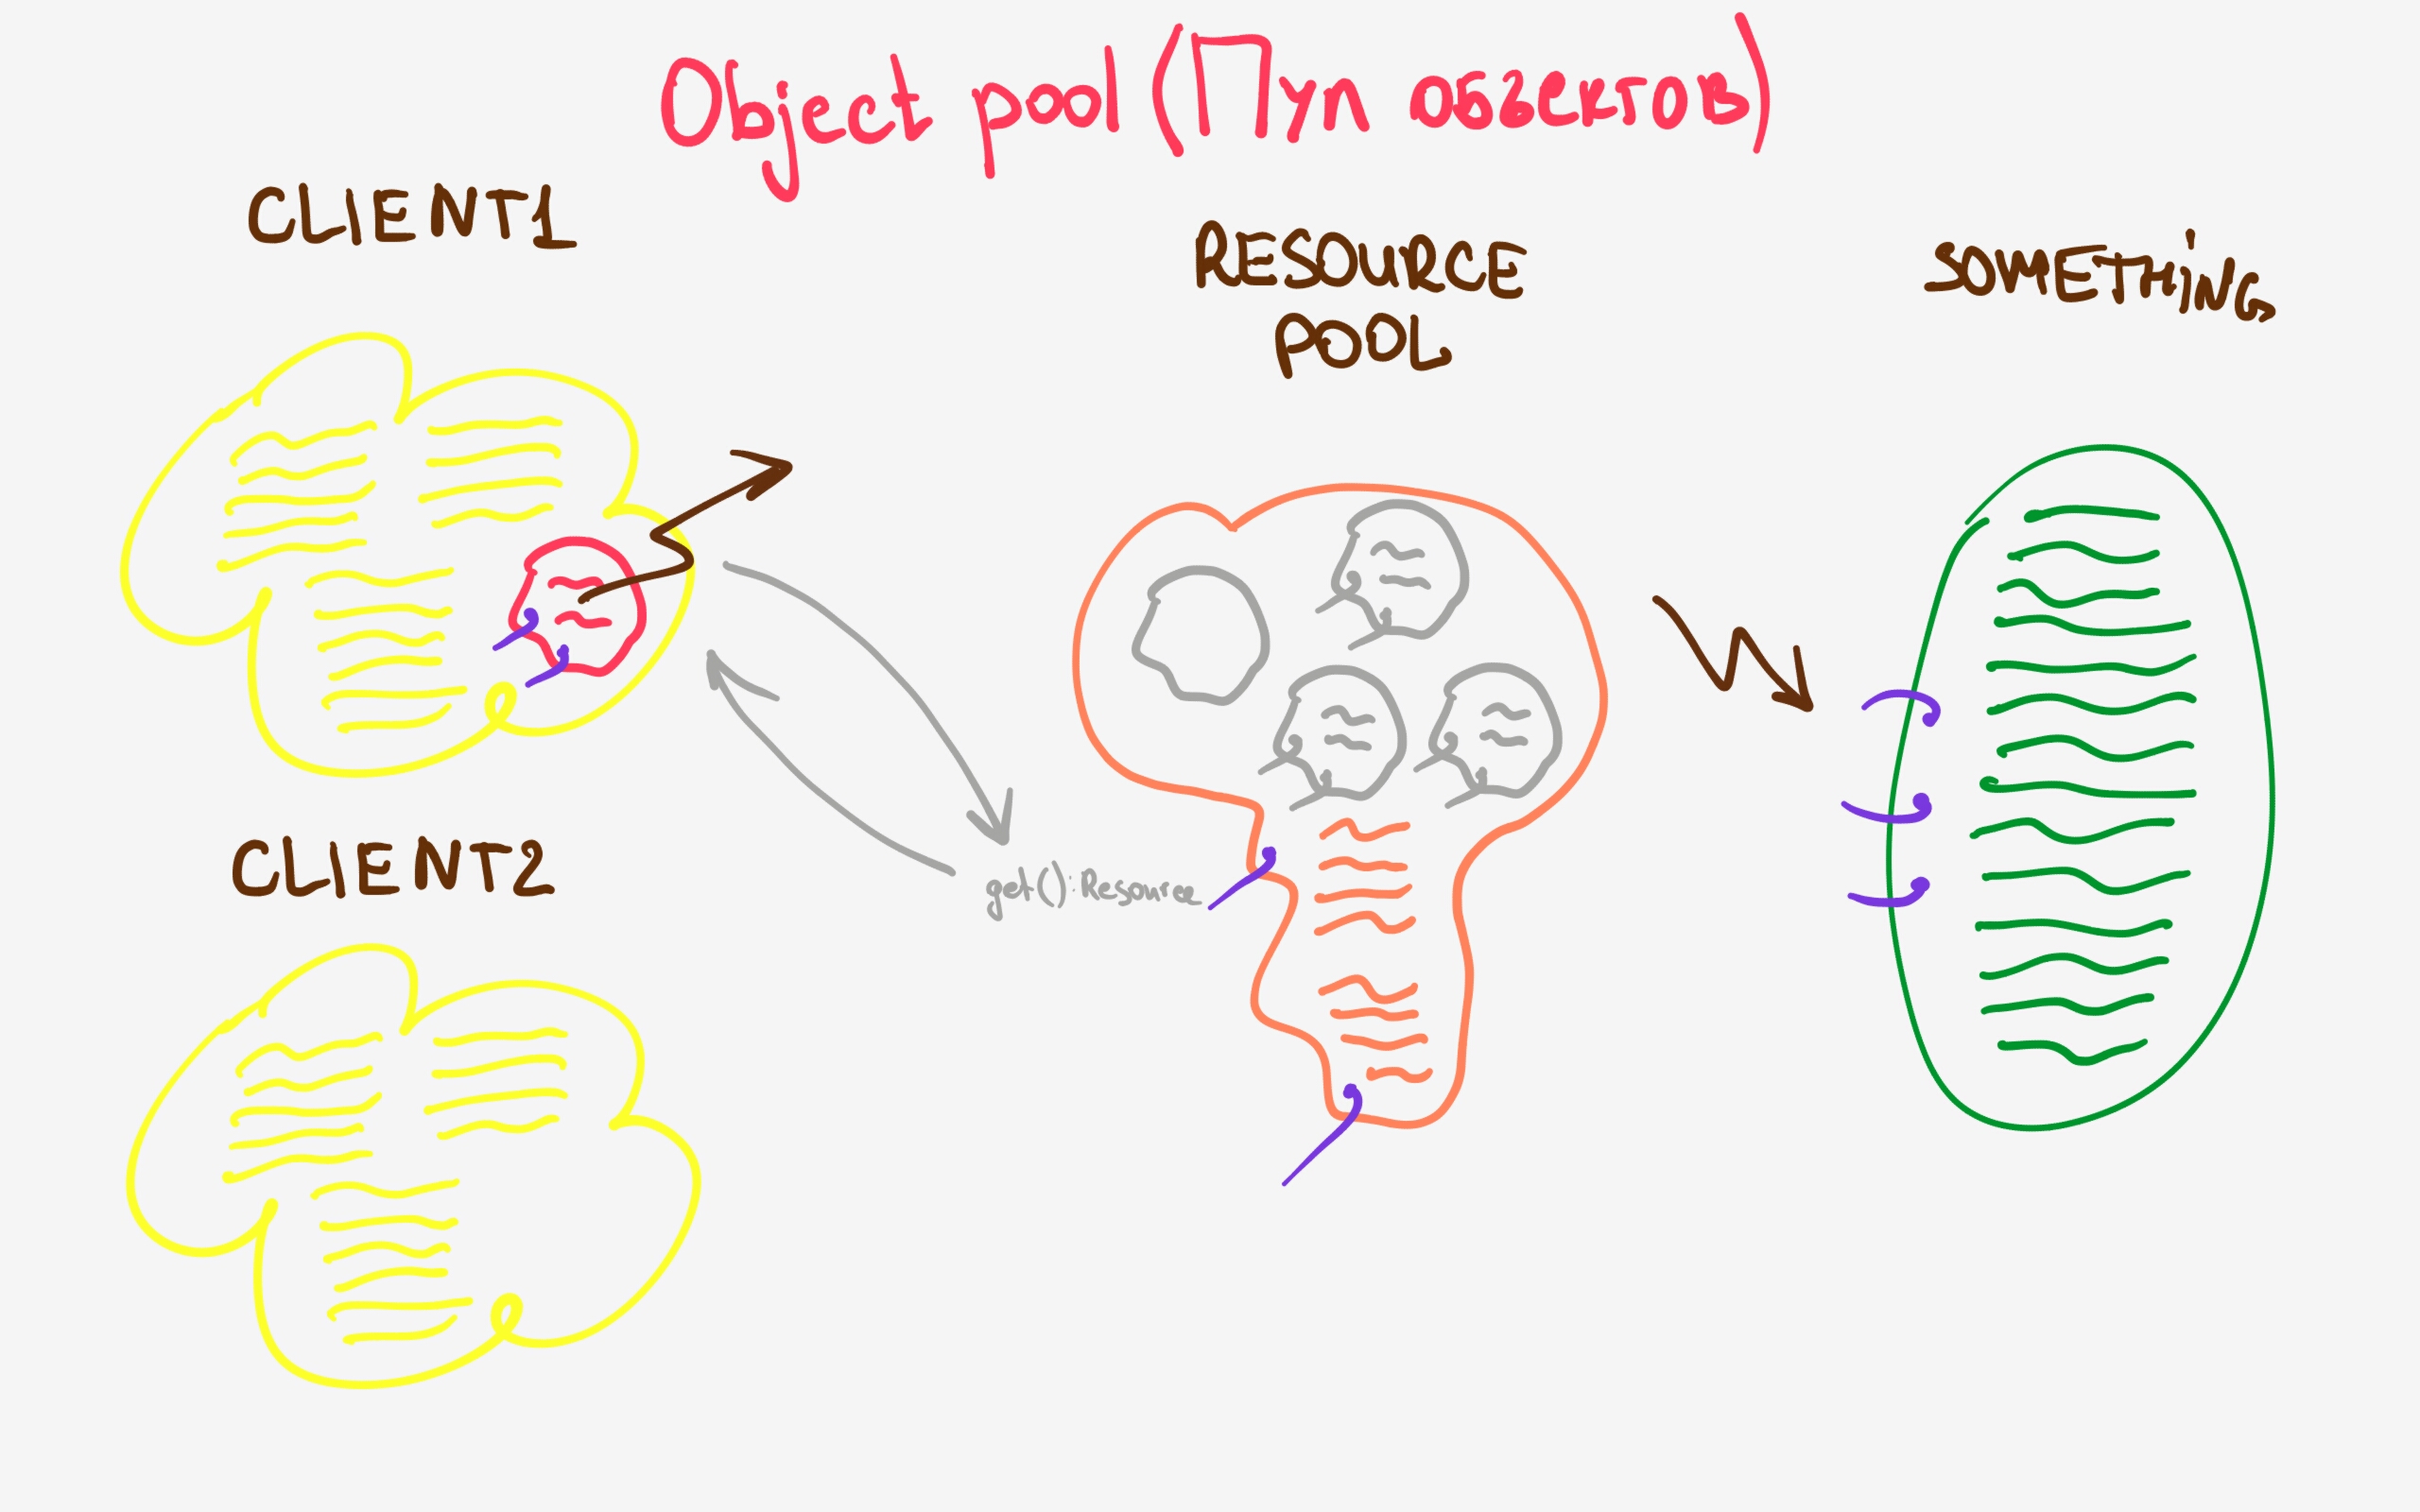 Object pool (Пул объектов)
CLIENT1
RESOURCE
POOL
SOMETHiNG
CLIENT2
get():Resource